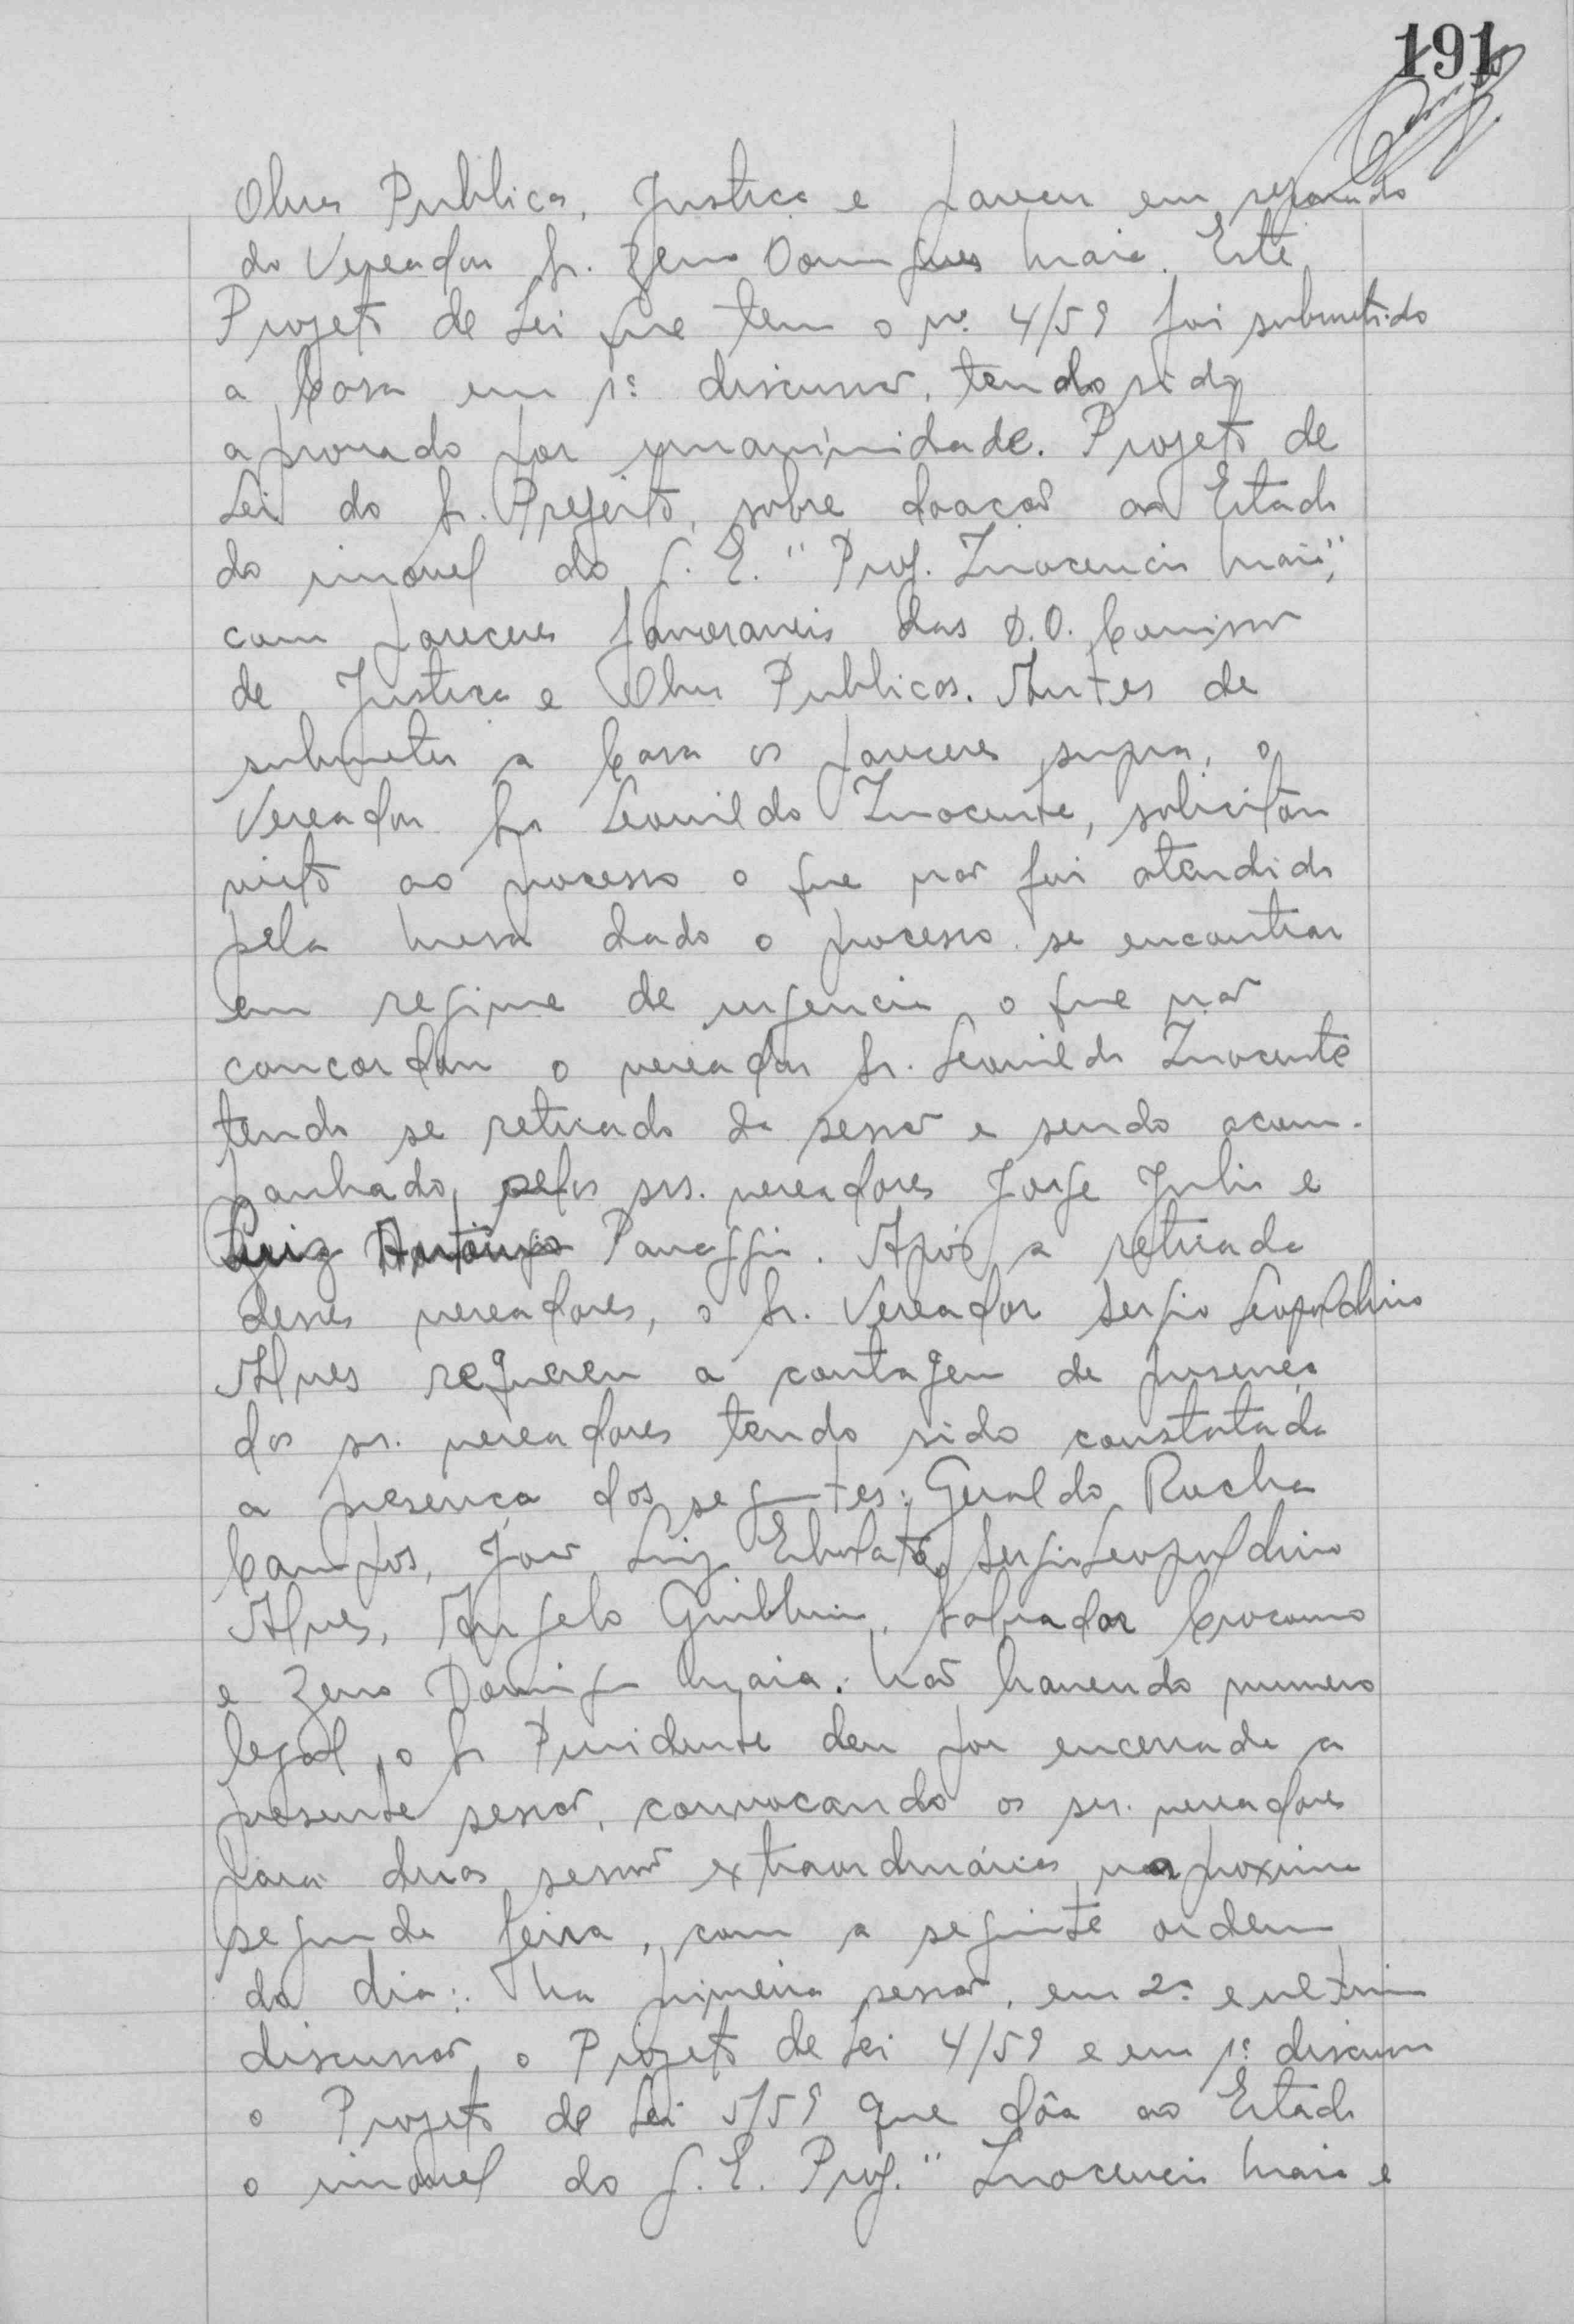 191
Obras Publicas, Justiça e parecer em separado
do Vereador Sr. Zeno Domingues Maia. Este
Projeto de Lei que tem o nº. 4/59 foi submetido
a Casa em 1ª discussão, tendo sido
aprovado por unanimidade. Projeto de
Lei do Sr. Prefeito, sobre doação ao Estado
do imovel do G. E. "Prof. Inocencio Maia",
com pareceres favoraveis das D.D. Comissão
de Justiça e Obras Publicas. Antes de
submeter a Casa os pareceres supra, o
Vereador Sr Leonildo Inocente, solicitou
visto ao processo o que não foi atendido
pela mesa dado o processo se encontrar
em regime de urgencia o que não
concordou o vereador Sr. Leonildo Inocente
tendo se retirado da sessão e sendo acom-
panhado, pelos srs. vereadores Jorge Julio e
Luiz Antônio Panaggio. Após a retirada
desses vereadores, o Sr. Vereador Sergio Leopoldino
Alves requereu a contagem de presença
dos srs. vereadores tendo sido constatada
a presença dos segtes: Geraldo Rocha
Campos, João Luiz Sergio Leopoldino
Alves, Angelo Salvador Crocomo
e Zeno Domingues Maia. Não havendo numero
legal, o Sr Presidente deu por encerrada a
presente sessão, convocando os srs. vereadores
para duas sessões extraordinárias na proxima
segunda feira, com a seguinte ordem
do dia: Na primeira sessão, em 2ª e ultima
discussão o Projeto de Lei 4/59 e em 1ª discussão
o Projeto de Lei 5/59 que dôa ao Estado
o imovel do G. E. Prof." Inocencio Maia e